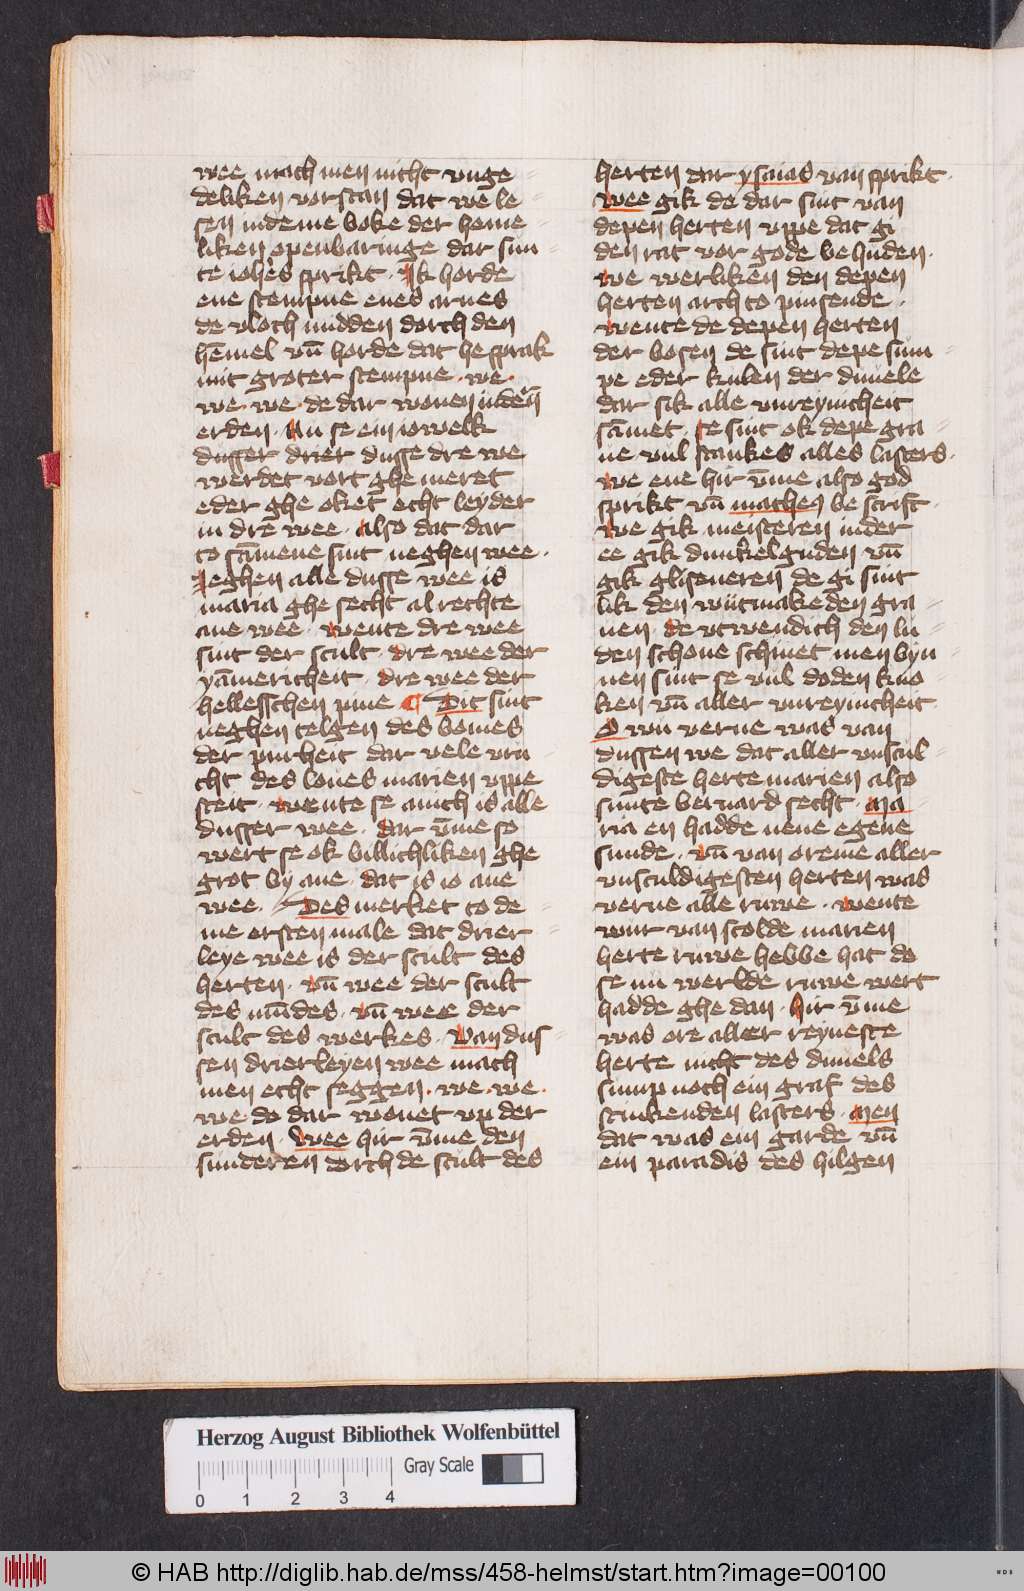 wee mach men nicht vnge
deliken vorstan dat we le
sen in deme boke der heme
liken openbaringe dar sun
te ioh̄es sprikt · Ik horde
ene stempne enes arnes
de vloch midden dorch den
hēmel vn̄ horde dat he sprak
mit groter stempne · we ·
we · we · de dar wonen in der
erden · Nu se ein iowelk
dusser drier dusse dre we
werdet vort ghe meret
eder ghe oket echt leyder
in dre wee · also dat dar
to sāmene sint neghen wee ·
Jeghen alle dusse wee is
maria ghe secht al rechte
ane wee · wente dre wee
sint der scult · dre wee der
yāmericheit · dre wee der
hellesschen pine ¶ Dit sint
neghen telgen des bomes
der purheit dar vele vru
cht des loues marien vppe
steit · wente se anich is alle
dusser wee · dar v̄me so
wert se ok billichliken ghe
grot by aue · dat is io ane
wee · Des merket to de
me ersten male dat drier
leye wee is der scult des
herten · vn̄ wee der scult
des mūdes · vn̄ wee der
scult des werkes · Van dus
sen drierleyen wee mach
men echt seggen · we · we ·
we · de dar wonet vp der
erden · Wee hir v̄me den
sunderen dorch de scult des
herten dar ysaias van sprikt ·
wee gik de dar sint van
depen herten vppe dat gi
den rat vor gode behuden ·
we werliken den depen
herten arch to pinsende ·
wente de depen herten
der bosen de sint depe sum
pe eder kulen der duuele
dar sik alle vnreynicheit
sāmet · se sint ok depe gra
ue vul stankes alles lasters ·
we ene hir v̄me also god
sprikt vn̄ matheus be scrift ·
we gik meisteren in der
ee gik dunkelguden vn̄
gik gliseneren de gi sint
lik den witmakeden gra
uen · de vtwendich den lu
den schone schinet men byn
nen sint se vul doden kno
ken vn̄ aller vnreynicheit ·
O wu verne was van
dussen we dat aller vnscul
digeste herte marien also
sunte bernard secht · Ma
ria en hadde nene egene
sunde · vn̄ van oreme aller
vnsculdigesten herten was
verne alle ruwe · wente
wur van scolde marien
herte ruwe hebbe hat de
se nu werlde ruwe wert
hadde ghe dan · hir v̄me
was ore aller reyneste
herte nicht des duuels
sump noch ein graf des
stinkenden lasters · Men
dat was ein garde vn̄
ein paradis des hilgen
Herzog August Bibliothek Wolfenbüttel
Gray Scale
0 1 2 3 4
© HAB http://diglib.hab.de/mss/458-helmst/start.htm?image=00100